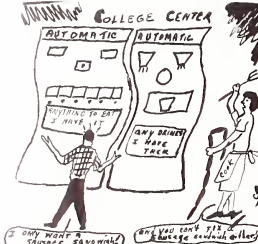 COLLEGE CENTER
AUTOMATIC
AUTOMATIC
ANYTHING TO EAT
I HAVE IT
ANY DRINKS
I HAVE
THEM
COOK
I ONLY WANT A
SAUSAGE SANDWICH!
AND YOU CAN'T FIX A
SAUSAGE SANDWICH either!